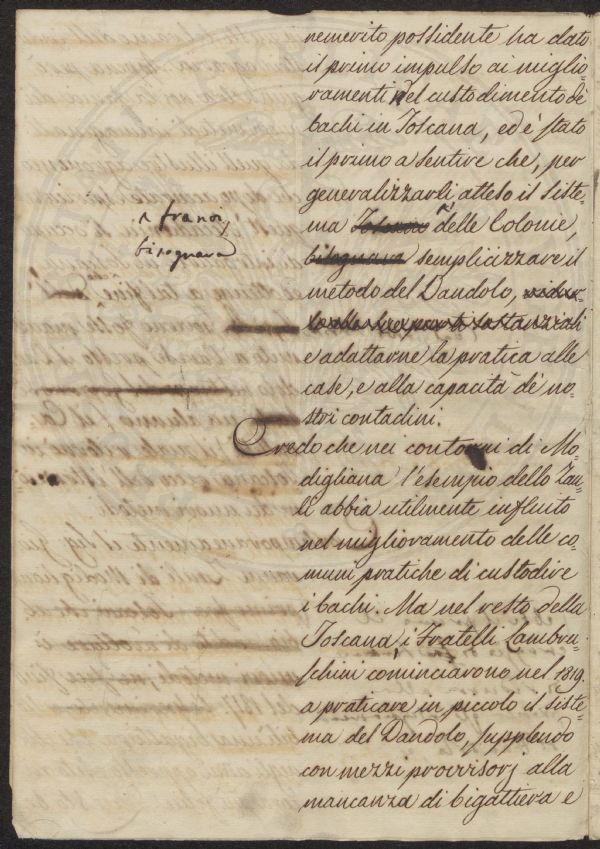 nemerito possidente ha dato
il primo impulso ai miglio-
ramenti del custodimento de'
bachi in Toscana, ed è stato
il primo a sentire che, per
generalizzarli, atteso il siste-
ma Toscano delle Colonie,
bisognava semplicizzare il
metodo del Dandolo,
e adattarne la pratica alle
case, e alla capacità de' no-
stri contadini.
Credo che nei contorni di Mo-
digliana l'esempio dello Zau-
li abbia utilmente influito
nel miglioramento delle co-
muni pratiche di custodire
i bachi. Ma nel resto della
Toscana, i Fratelli Lambru-
schini cominciarono nel 1819.
a praticare in piccolo il siste-
ma del Dandolo, supplendo
con mezzi provvisorj alla
mancanza di bigattiera e
bisognava